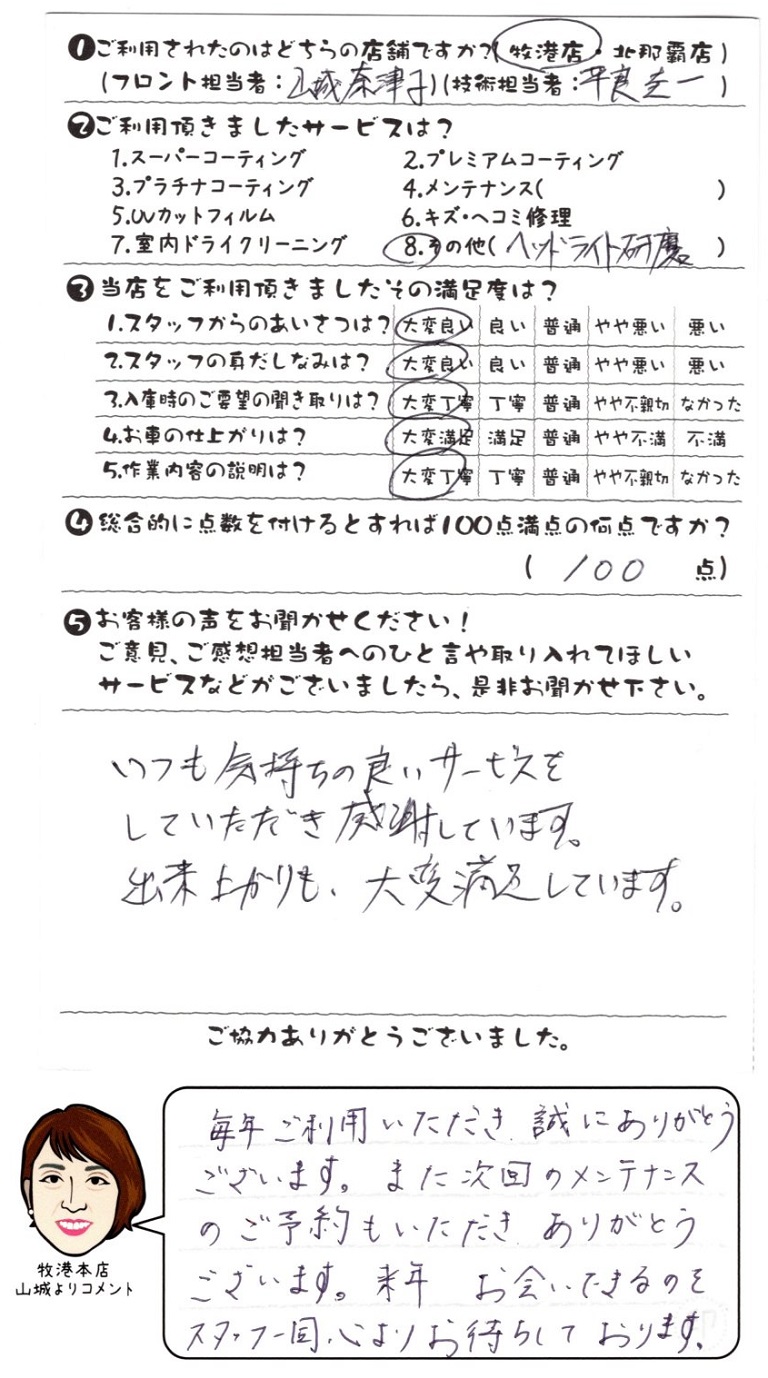 ❶ご利用されたのはどちらの店舗ですか?(牧港店・北那覇店)
(フロント担当者:山城奈津子)(技術担当者:平良圭一)
❷ご利用頂きましたサービスは?
1.スーパーコーティング 2.プレミアムコーティング
3.プラチナコーティング 4.メンテナンス( )
5.UVカットフィルム 6.キズ・ヘコミ修理
7.室内ドライクリーニング 8.その他(ヘッドライト研磨)
❸当店をご利用頂きましたその満足度は?
1.スタッフからのあいさつは? 大変良い 良い 普通 やや悪い 悪い
2.スタッフの身だしなみは? 大変良い 良い 普通 やや悪い 悪い
3.入庫時のご要望の聞き取りは? 大変丁寧 丁寧 普通 やや不親切 なかった
4.お車の仕上がりは? 大変満足 満足 普通 やや不満 不満
5.作業内容の説明は? 大変丁寧 丁寧 普通 やや不親切 なかった
❹総合的に点数を付けるとすれば100点満点の何点ですか?
(100 点)
❺お客様の声をお聞かせください!
ご意見、ご感想担当者へのひと言や取り入れてほしい
サービスなどがございましたら、是非お聞かせ下さい。
いつも気持ちの良いサービスを
していただき感謝しています。
出来上がりも、大変満足しています。
ご協力ありがとうございました。
毎年ご利用いただき 誠にありがとう
ございます。また次回のメンテナンス
のご予約もいただき ありがとう
ございます。来年 お会いできるのを
スタッフ一同、心よりお待ちして おります。
牧港本店
山城よりコメント